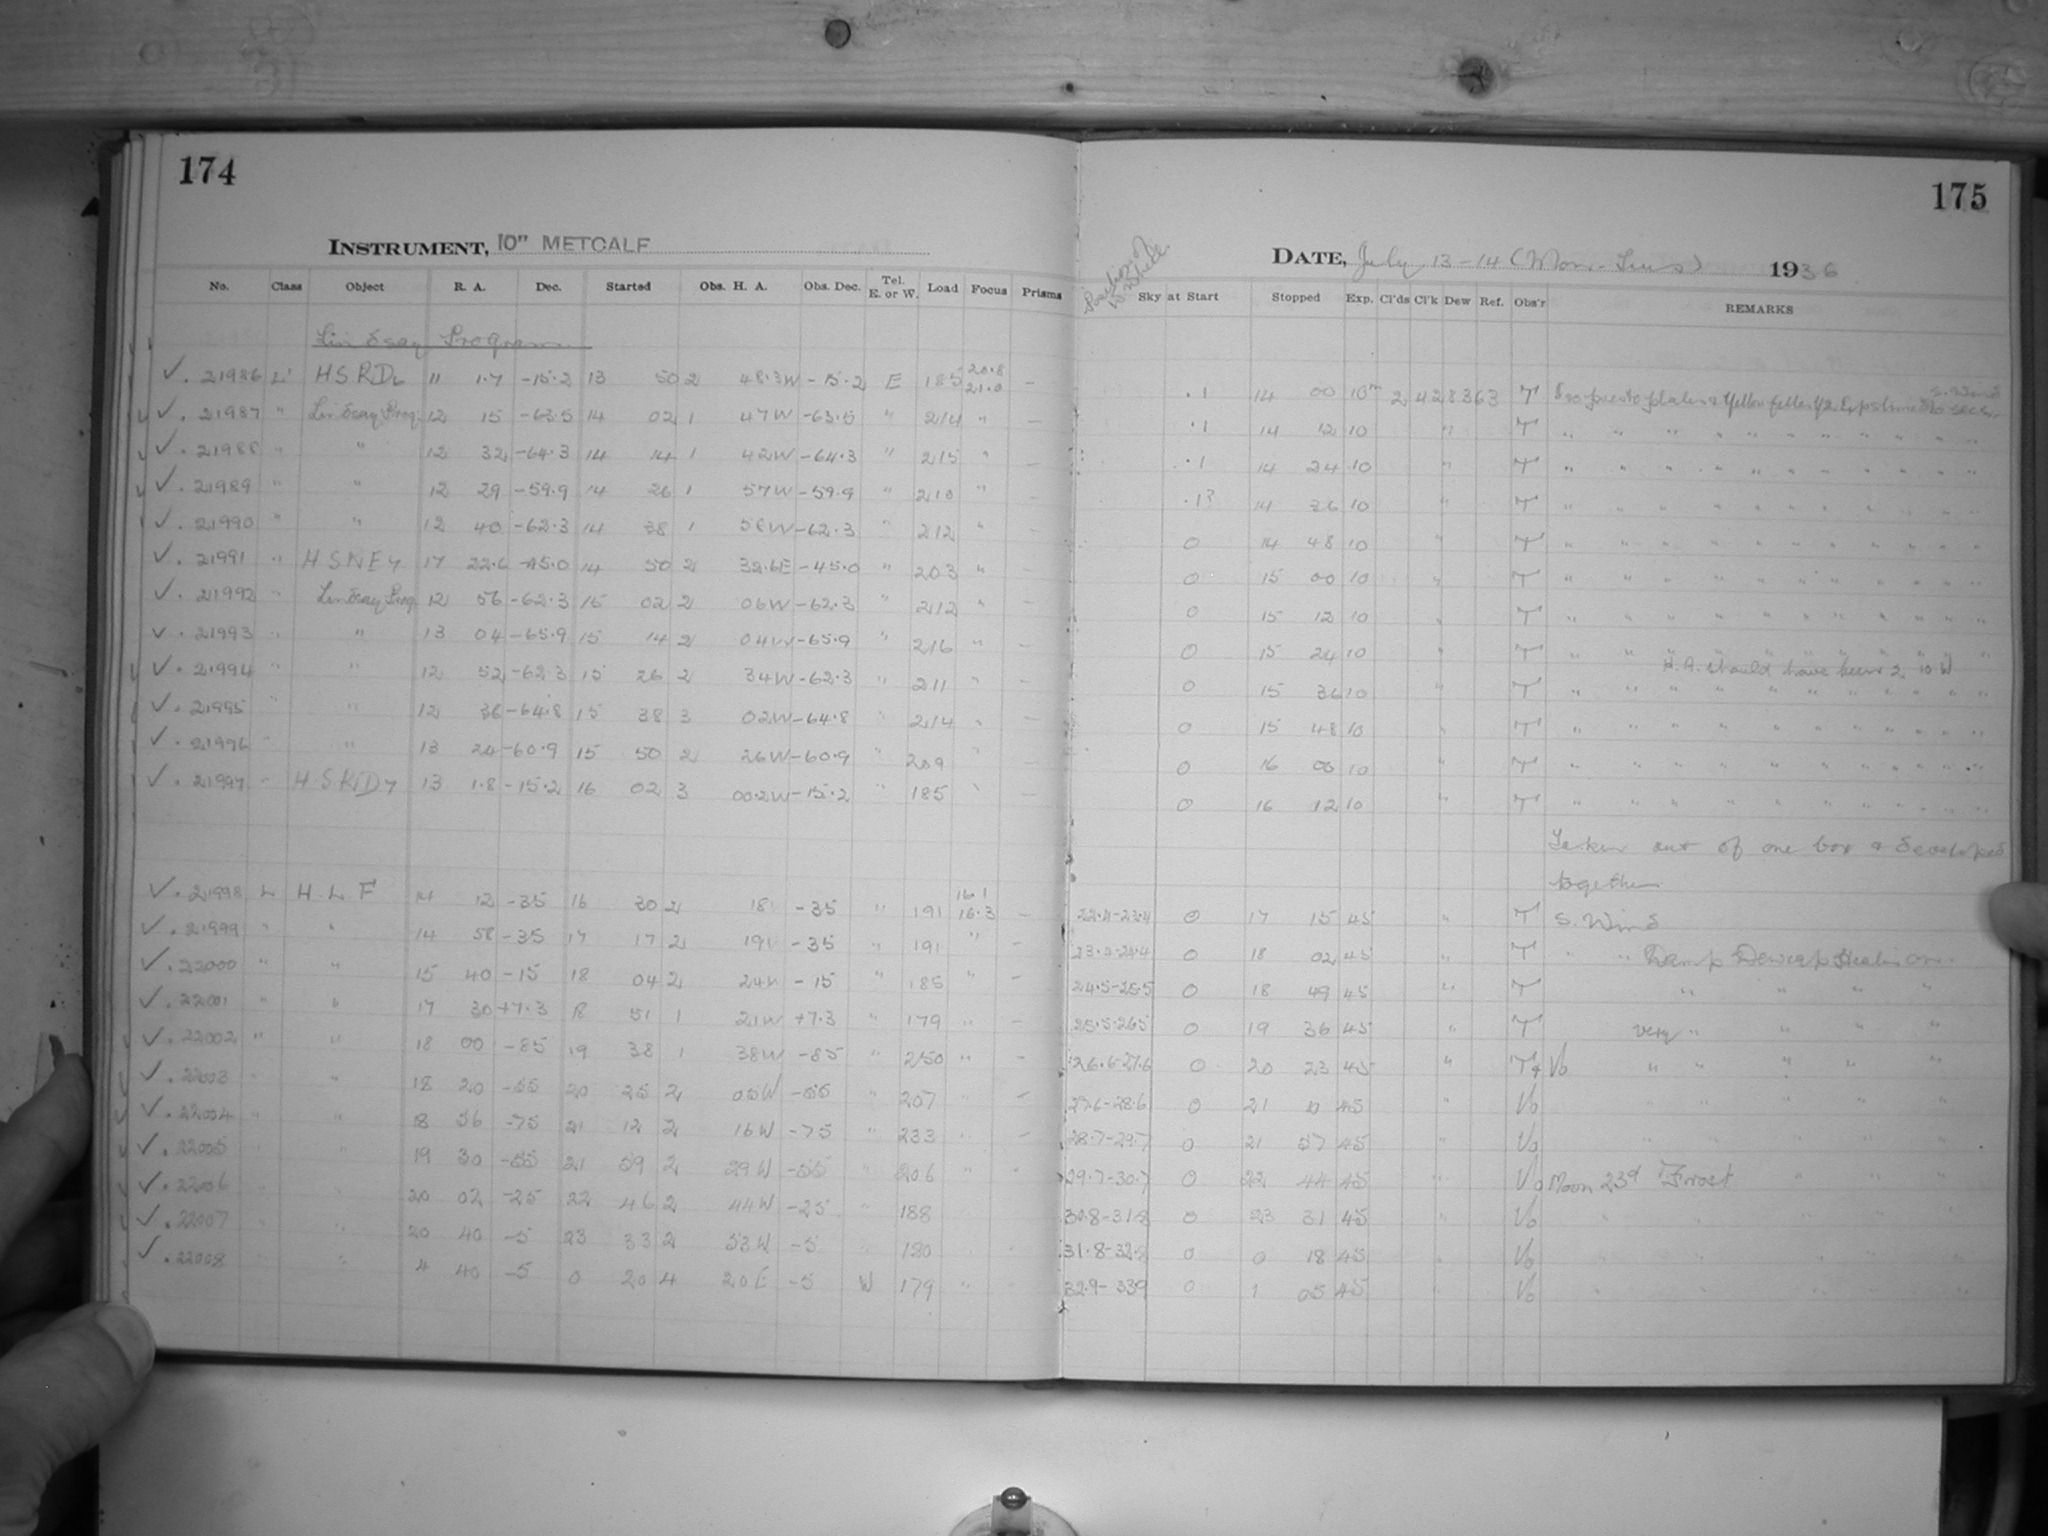 174
INSTRUMENT, 10" METCALF
No. Class Object R. A. Dec. Started Obs. H. A. Obs. Dec. Tel. E. or W. Load Focus Prisms
Lindsay Program
✓. 21986 L' HSRD6 11 1.7 -15.2 13 50 2 48.3W -15.2 E 185 20.8 21.0 —
✓. 21987 " Lindsay Prog. 12 15 -63.5 14 02 1 47W -63.5 " 214 " —
✓. 21988 " " 12 32 -64.3 14 14 1 42W -64.3 " 215 " —
✓. 21989 " " 12 29 -59.9 14 26 1 57W -59.9 " 210 " —
✓. 21990 " " 12 40 -62.3 14 38 1 58W -62.3 " 212 " —
✓. 21991 " HSNE7 17 22.6 -45.0 14 50 2 32.6E -45.0 " 203 " —
✓. 21992 " Lindsay Prog. 12 56 -62.3 15 02 2 06W -62.3 " 212 " —
✓. 21993 " " 13 04 -65.9 15 14 2 04W -65.9 " 216 " —
✓. 21994 " " 12 52 -62.3 15 26 2 34W -62.3 " 211 " —
✓. 21995 " " 12 36 -64.8 15 38 3 02W -64.8 " 214 " —
✓. 21996 " " 13 24 -60.9 15 50 2 26W -60.9 " 209 " —
✓. 21997 " HSRD7 13 1.8 -15.2 16 02 3 00.2W -15.2 " 185 " —
✓. 21998 L HLF 14 12 -35 16 30 2 18 -35 " 191 16.1 16.3 —
✓. 21999 " " 14 58 -35 17 17 2 19 -35 " 191 " —
✓. 22000 " " 15 40 -15 18 04 2 24 -15 " 185 " —
✓. 22001 " " 17 30 +7.3 18 51 1 21W +7.3 " 179 " —
✓. 22002 " " 18 00 -85 19 38 1 38W -85 " 250 " —
✓. 22003 " " 18 20 -55 20 25 2 05W -55 " 207 " —
✓. 22004 " " 18 56 -75 21 12 2 16W -75 " 233 " —
✓. 22005 " " 19 30 -55 21 59 2 29W -55 " 206 " "
✓. 22006 " 20 02 -25 22 46 2 44W -25 " 188
✓. 22007 " " 20 40 -5 23 33 2 53W -5 180
✓. 22008 " " 4 40 -5 0 20 4 20E -5 W 179 "
175
DATE, July 13-14 (Mon-Tues) 1936
Position of
Sky at Start Stopped Exp. Cl'ds Cl'k Dew Ref. Obs'r REMARKS
S. Wind
.1 14 00 10m 2 T
.1 14 12 10 " T " "
.1 14 24 10 " T " "
.1? 14 36 10 " T " "
0 14 48 10 " T " "
0 15 00 10 " T " "
0 15 12 10 " T " "
0 15 24 10 " T " "
H.A. should have been 2 10 W
0 15 36 10 " T " "
0 15 48 10 " T " "
0 16 00 10 " T " "
0 16 12 10 " T " "
Taken out of one box & developed
together
22.4-23.4 0 17 15 45 " T S. Wind
0 18 02 45 " T " " Damp Dewcap Heater on.
24.5-25.5 0 18 49 45 " T " " " "
25.5-26.5 0 19 36 45 " T very " " " "
26.6-27.6 0 20 23 45 " T & Vo " " " " "
27.6-28.6 0 21 10 45 " Vo " " " " "
28.7-29.7 0 21 57 45 " Vo " " " " "
29.7-30.7 0 22 44 45 " Vo Moon 23d Frost " " "
30.8-31.8 0 23 31 45 " Vo " " " " "
31.8-32.8 0 0 18 45 " Vo " " " " "
32.9-33.9 0 1 05 45 " Vo " " " " "